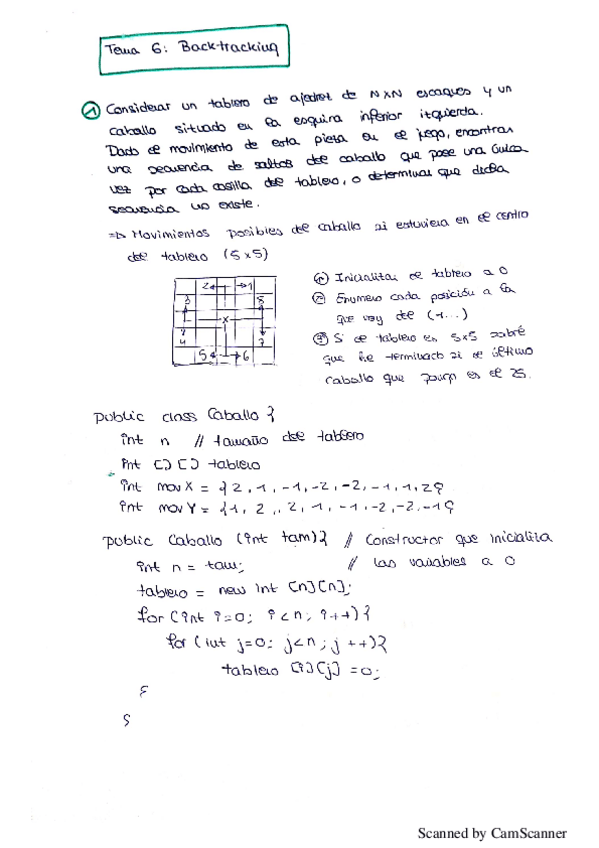 Tema 6: Backtracking
① Considerar un tablero de ajedrez de NxN escaques y un
caballo situado en la esquina inferior izquierda.
Dado el movimiento de esta pieza en el juego, encontrar
una secuencia de saltos del caballo que pase una única
vez por cada casilla del tablero, o determinar que dicha
secuencia no existe.
=> Movimientos posibles de caballo si estuviera en el centro
del tablero (5x5)
2 1
3 8
x
4 7
5 6
① Inicializar el tablero a 0
② Enumero cada posición a la
que voy de (1...)
③ Si el tablero es 5x5 sabré
que he terminado si el último
caballo que pongo es el 25.
public class Caballo {
int n // tamaño del tablero
int [] [] tablero
int movX = {2, 1, -1, -2, -2, -1, 1, 2}
int movY = {1, 2, 2, 1, -1, -2, -2, -1}
public Caballo (int tam) { // Constructor que inicializa
int n = tam; // las variables a 0
tablero = new int [n][n];
for (int i=0; i<n; i++) {
for (int j=0; j<n; j++) {
tablero [i][j] = 0;
}
}
Scanned by CamScanner